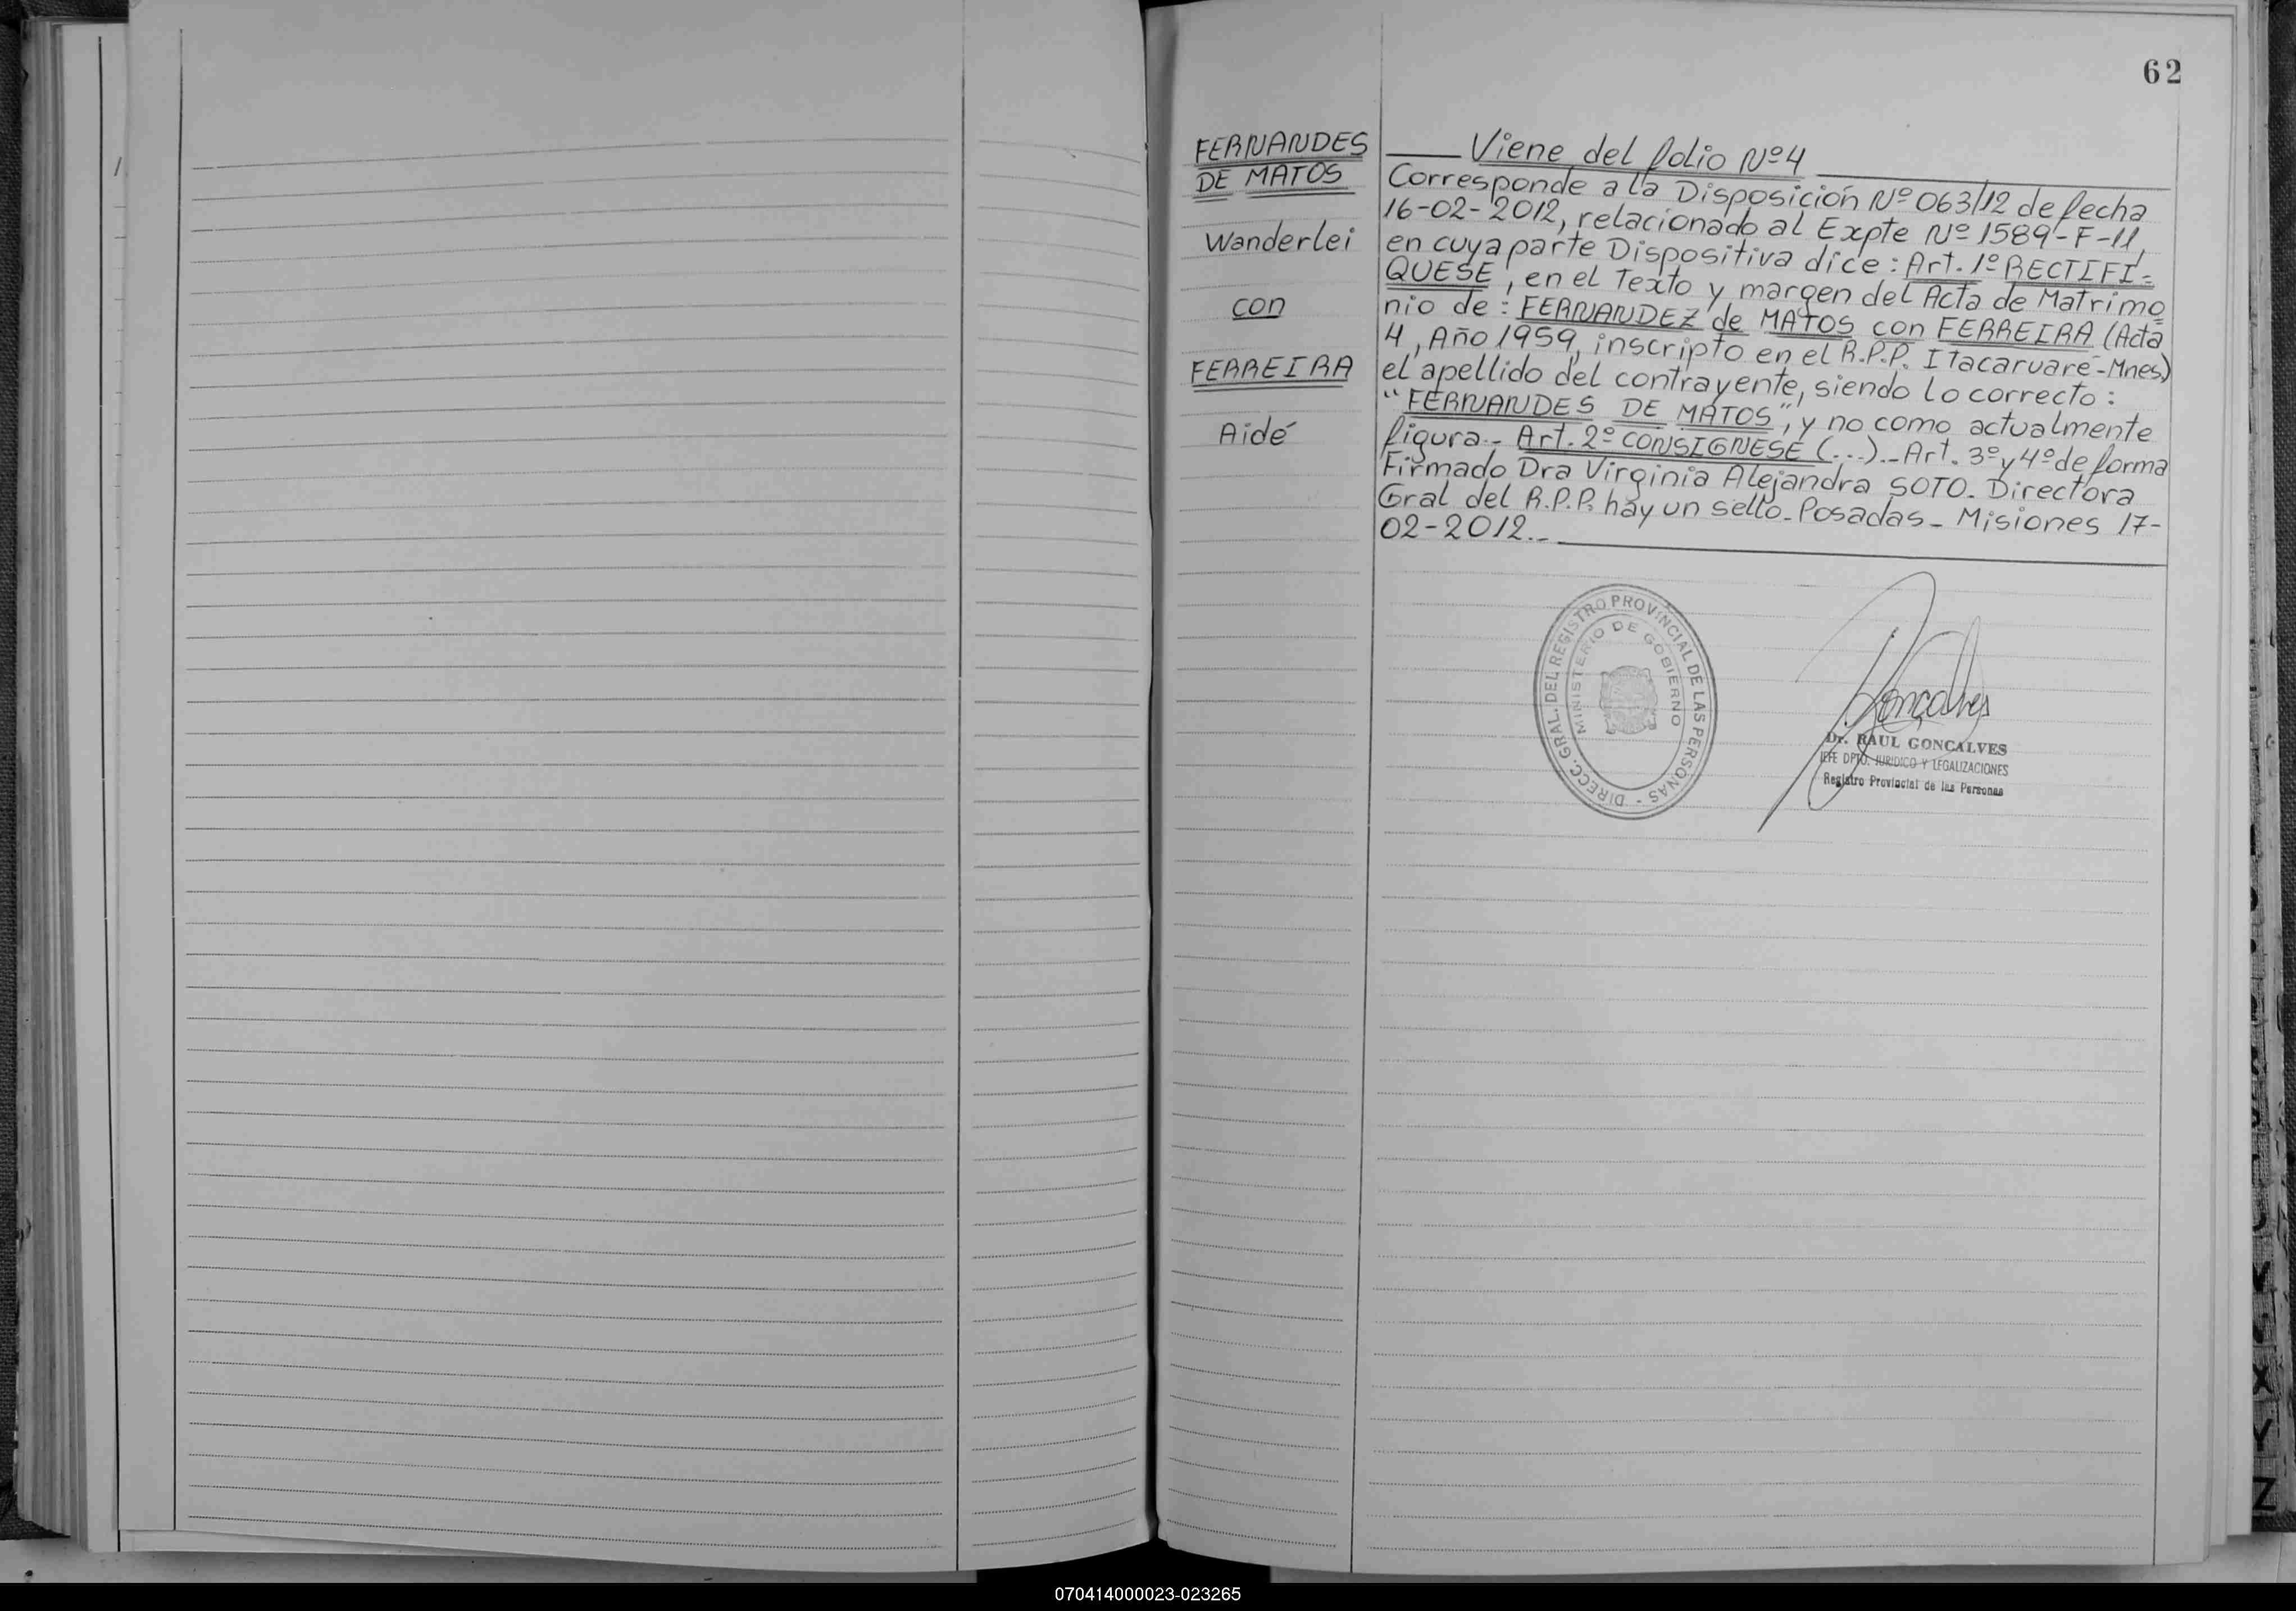 62
FERNANDES
DE MATOS
Wanderlei
con
FERREIRA
Aidé
Viene del folio Nº 4
Corresponde a la Disposición Nº 063/12 de fecha
16-02-2012, relacionado al Expte Nº 1589-F-11,
en cuya parte Dispositiva dice: Art. 1º RECTIFI=
QUESE, en el Texto y margen del Acta de Matrimo=
nio de: FERNANDEZ de MATOS con FERREIRA (Acta
4, Año 1959, inscripto en el R.P.P. Itacaruaré-Mnes)
el apellido del contrayente, siendo lo correcto:
"FERNANDES DE MATOS", y no como actualmente
figura.- Art. 2º CONSIGNESE (...).- Art. 3º y 4º de forma
Firmado Dra Virginia Alejandra SOTO- Directora
Gral del R.P.P. hay un sello- Posadas- Misiones 17-
02-2012.-
DIRECC. GRAL. DEL REGISTRO PROVINCIAL DE LAS PERSONAS -
MINISTERIO DE GOBIERNO
Goncalves
Dr. RAUL GONCALVES
JEFE DPTO. JURIDICO Y LEGALIZACIONES
Registro Provincial de las Personas
X
Y
Z
070414000023-023265